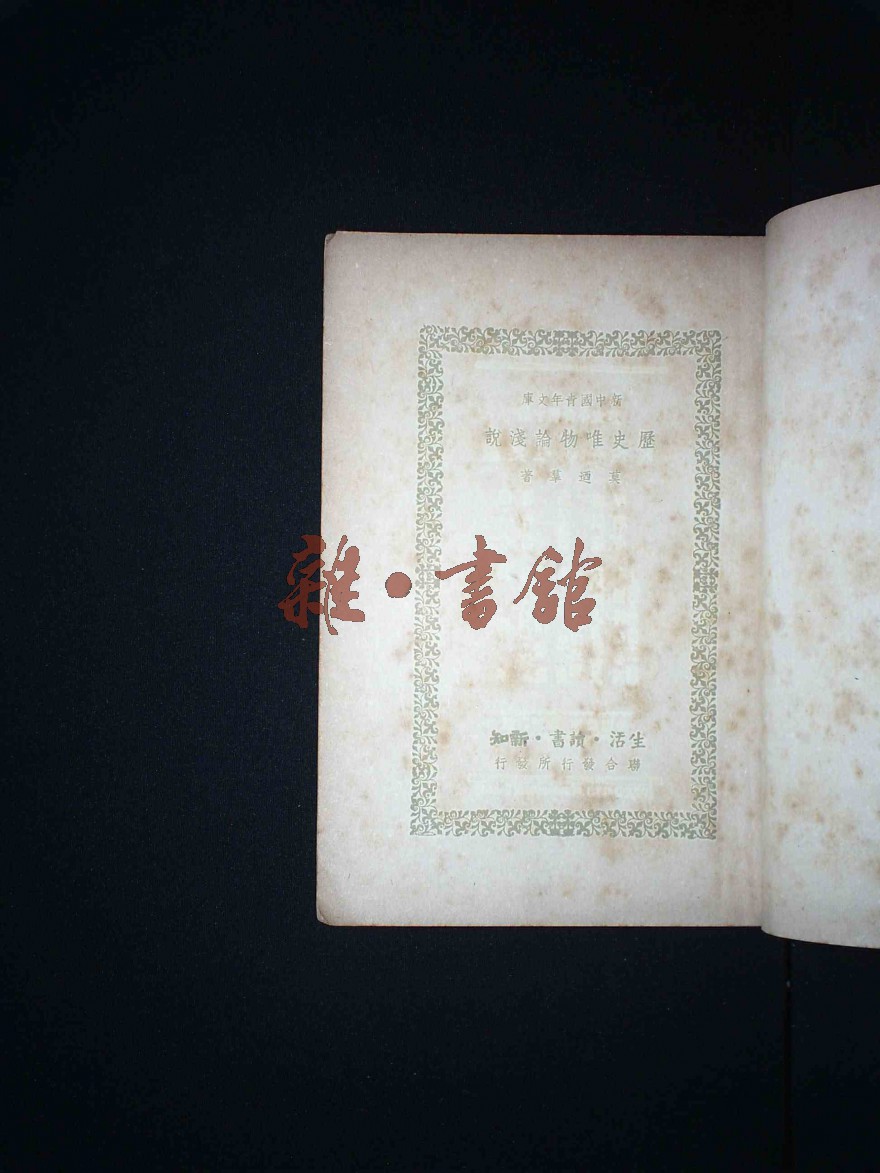 新中國青年文庫
歷史唯物論淺說
莫迺羣著
雜·書館
生活·讀書·新知
聯合發行所發行